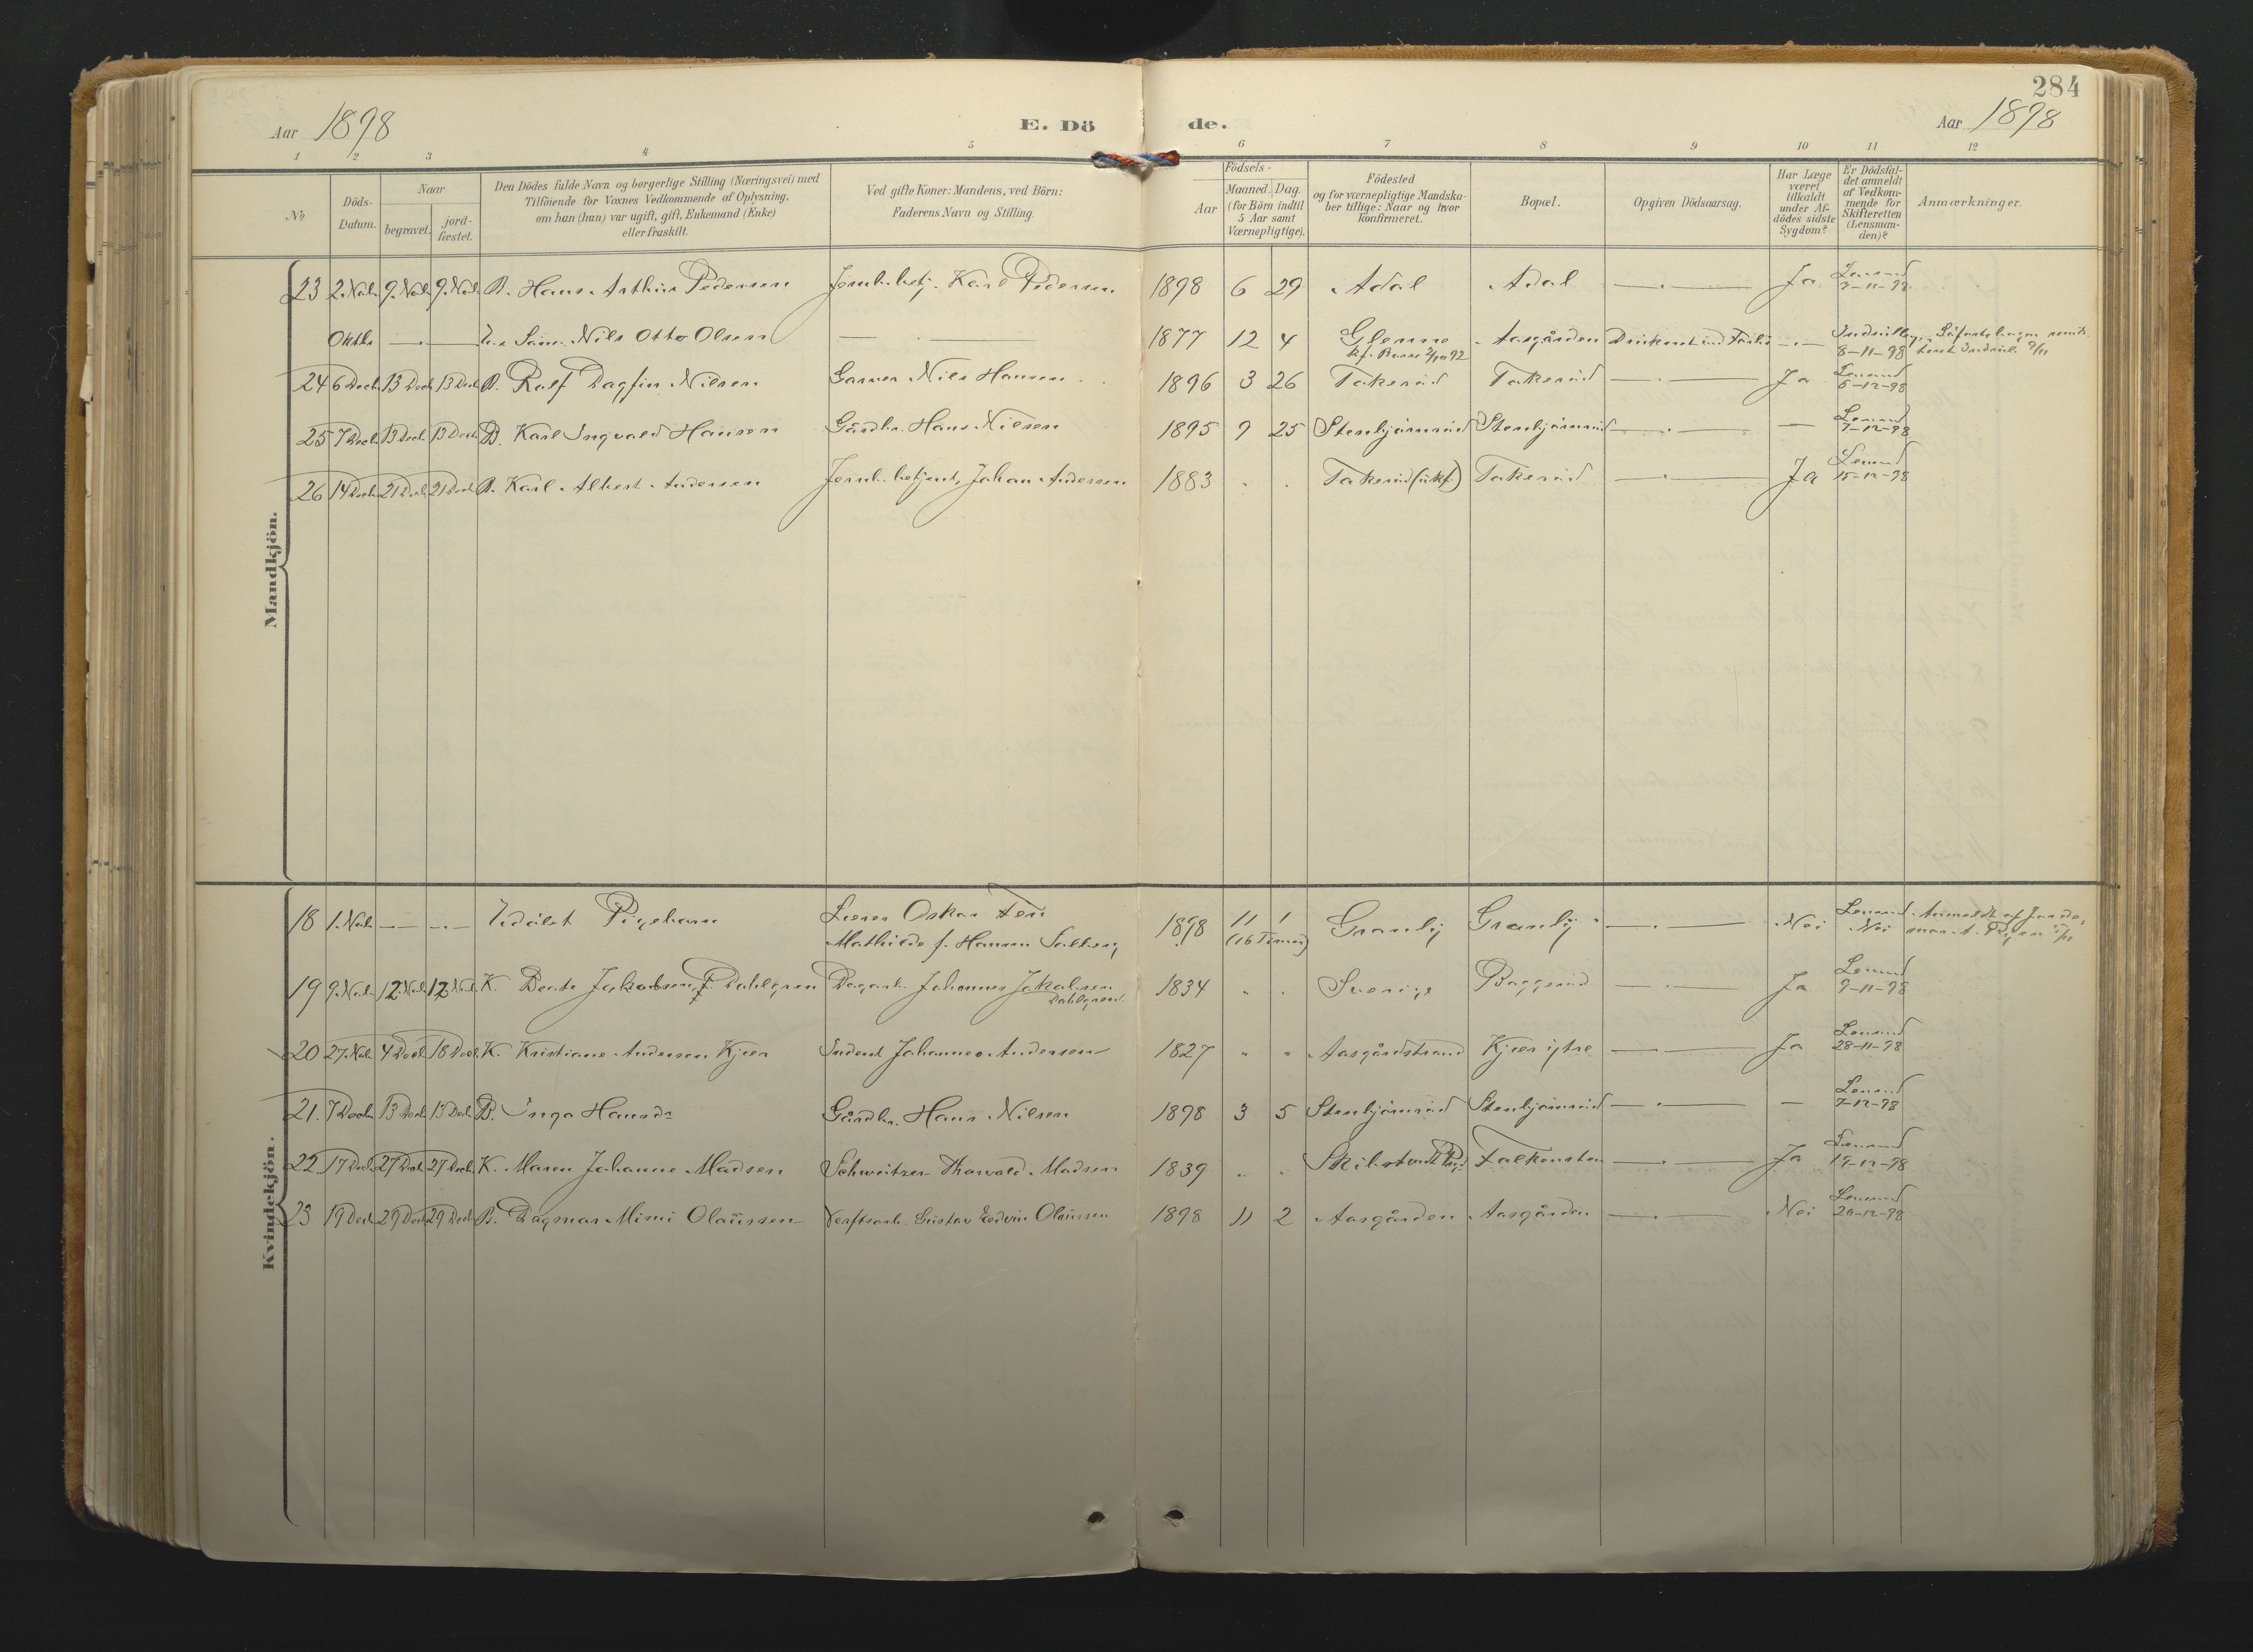 284
Aar 1898
E. Dö de.
Aar 1898
1 2 3 4 5 6 7 8 9 10 11 12
№
Döds-
Datum.
Naar
begravet.
jord-
fæstet.
Den Dödes fulde Navn og borgerlige Stilling (Næringsvei) med
Tilföiende for Voxnes Vedkommende af Oplysning,
om han (hun) var ugift, gift, Enkemand (Enke)
eller fraskilt.
Ved gifte Koner: Mandens, ved Börn:
Faderens Navn og Stilling.
Födsels-
Aar
Maaned. Dag.
(for Börn indtil
5 Aar samt
Værnepligtige).
Födested
og for værnepligtige Mandska-
ber tillige: Naar og hvor
konfirmeret.
Bopæl.
Opgiven Dödsaarsag.
Har Læge
været
tilkaldt
under Af-
dödes sidste
Sygdom?
Er Dödsfal-
det anmeldt
af Vedkom-
mende for
Skifteretten
(Lensman-
den)?
Anmærkninger.
Mandkjön.
23 2 Nob. 9. Nob. 9. Nob. B. Hans Arthur Pedersen Jernb. betj. Karl Pedersen 1898 6 29 Adal Adal — . — Ja Lensmd 3-11-98
Oktbr — . — Nils Otto Olsen — . — 1877 12 4 Glenne Aasgården — . — 8-11-98
kf. Borre 2/10 92
24 6 Decb. 13 Decb. 13 Decb. B. Ralf Dagfin Nilsen Garver Nils Hansen 1896 3 26 Takerud Takerud — . — Ja Lensmd 6-12-98
25 7 Decb. 13 Decb. 13 Decb. B. Karl Ingvald Hansen Gårdbr. Hans Nilsen 1895 9 25 Stenbjörnrud Stenbjörnrud — . — — Lensmd 7-12-98
26 14 Decb. 21 Decb. 21 Decb. B. Karl Albert Andersen Jernb. betjent, Johan Andersen 1883 . . Takerud (ukf.) Takerud — . — Ja Lensmd 15-12-98
Kvindekjön.
18 1. Nob. — . — Udöbt Pigebarn Lærer Oskar Fen 1898 11 1 Granly Granly — . — Nei Lensmd Nei Anmeldt af Jorde-
Mathilde f. Hansen (16 Timer) mor
19 9. Nob. 12. Nob. 12 Nob. K. Beate Jakobsen f. Dahlgren Dagarb. Johannes Jakobsen 1834 " . Sverige Baggerud — . — Ja Lensmd 9-11-98
Dahlgren
20 27. Nob. 4 Decb. 18 Decb. K. Kristiane Andersen Kjær Inderst Johannes Andersen 1827 " " Aasgårdstrand Kjær ytre — . — Ja Lensmd 28-11-98
21. 7 Decb. 13 Decb. 13 Decb. B. Inga Hansdr Gårdbr. Hans Nilsen 1898 3 5 Stenbjörnrud Stenbjörnrud — . — — Lensmd 7-12-98
22 17 Decb. 27 Decb. 27 Decb. K. Maren Johanne Madsen Schweitzer Thorvald Madsen 1839 . . Falkensten — . — Ja Lensmd 19-12-98
23 19 Decb. 29 Decb. 29 Decb. B. Dagmar Mimi Olaüssen Verftsarb. Gustav Edvin Olaüssen 1898 11 2 Aasgården Aasgården — . — Nei Lensmd 20-12-98